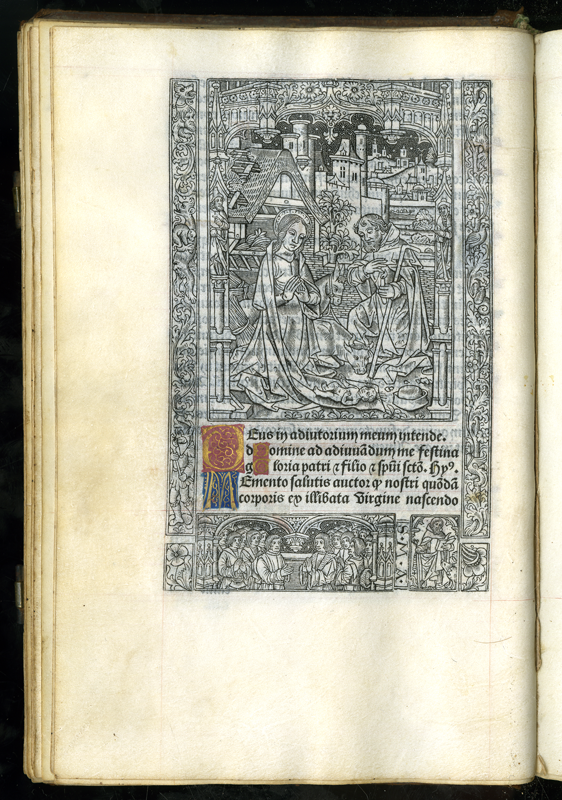 Deus in adiutorium meum intende.
domine ad adiuuādum me festina
gloria patri ⁊ filio ⁊ spūi sctō. Hyꝰ.
Memento salutis auctor ꝙ nostri quōdā
corporis ex illibata virgine nascendo
S. M. A.